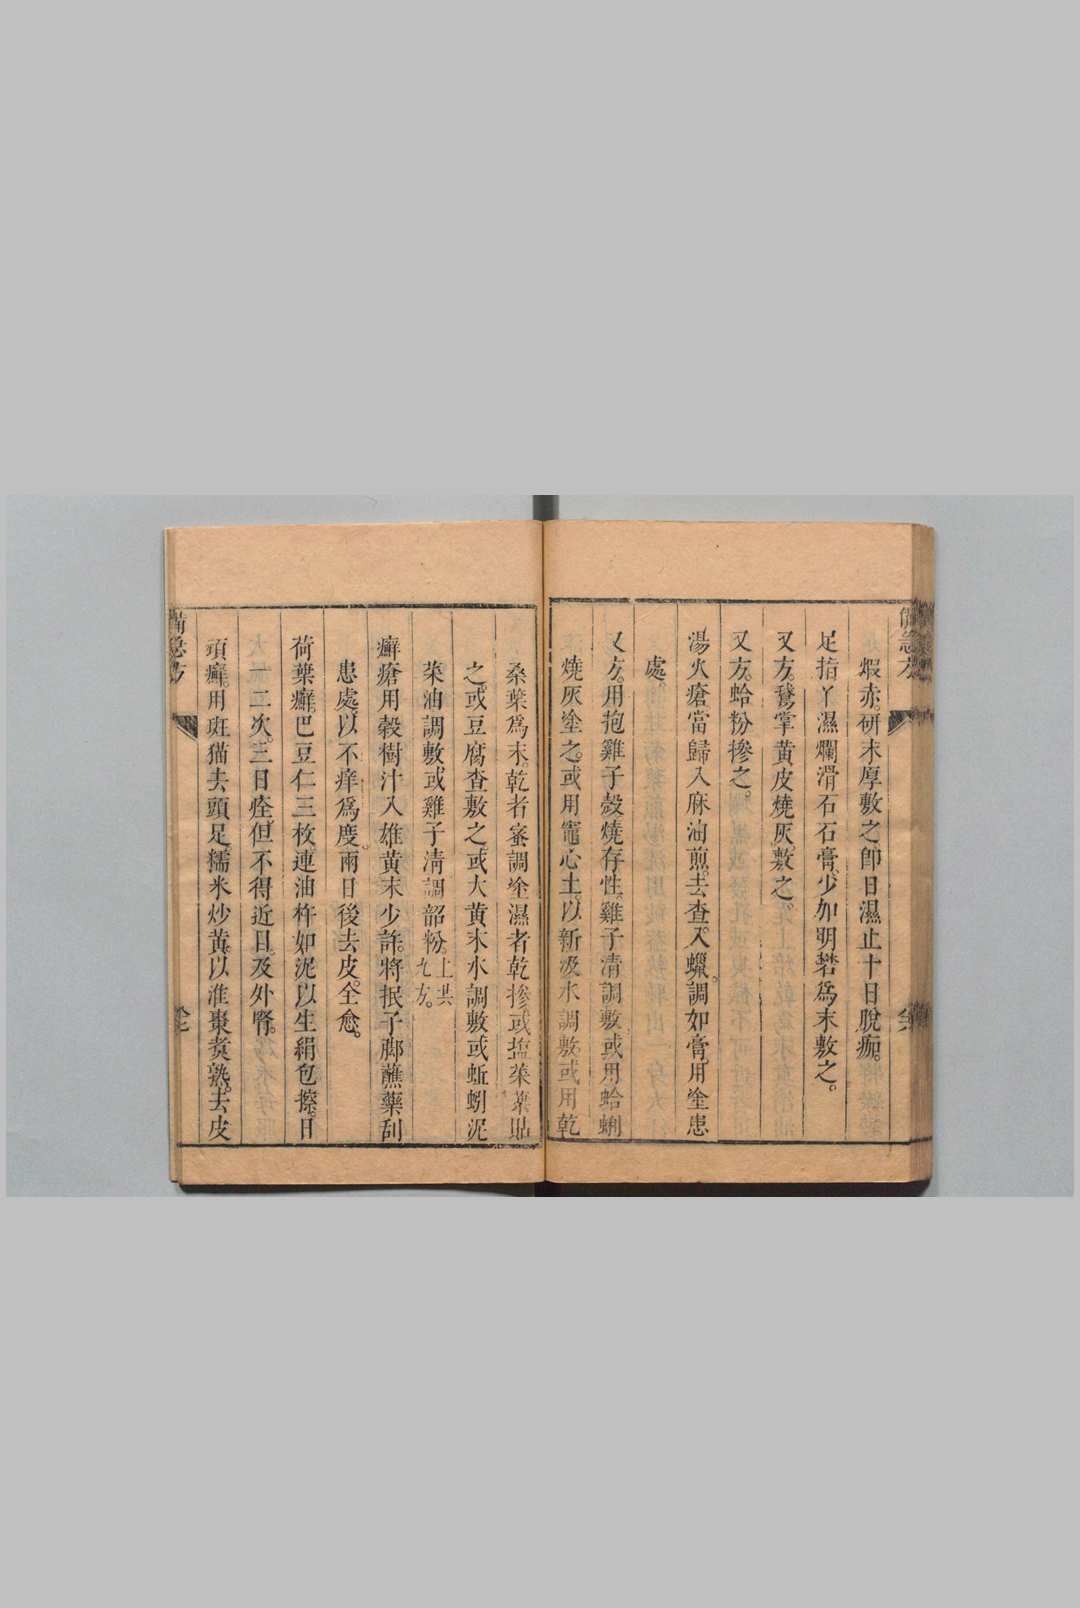 備急方
煆赤。研末厚敷之卽日濕止十日脫痂。
足指丫濕爛滑石石膏。少加明礬爲末敷之。
又方。鵞掌黃皮燒灰敷之。
又方。蛤粉摻之。
湯火瘡當歸入麻油煎。去查。入蠟。調如膏。用塗患
處。
又方。用抱雞子殼燒存性。雞子淸調敷。或用蛤蜊
燒灰塗之。或用竈心土。以新汲水調敷。或用乾
桑葉爲末。乾者蜜調塗濕者乾摻或塩菜葉貼
之或豆腐查敷之或大黃末水調敷或蚯蚓泥
菜油調敷或雞子淸調韶粉。上共九方。
癬瘡用穀樹汁入雄黃末少許。將抿子脚蘸藥刮
患處以不痒爲度。兩日後去皮。全愈。
荷葉癬。巴豆仁三枚連油杵如泥以生絹包擦。日
二次。三日痊。但不得近目。及外腎。
頭癬。用斑猫去頭足。糯米炒黃。以淮棗煮熟。去皮
備急方